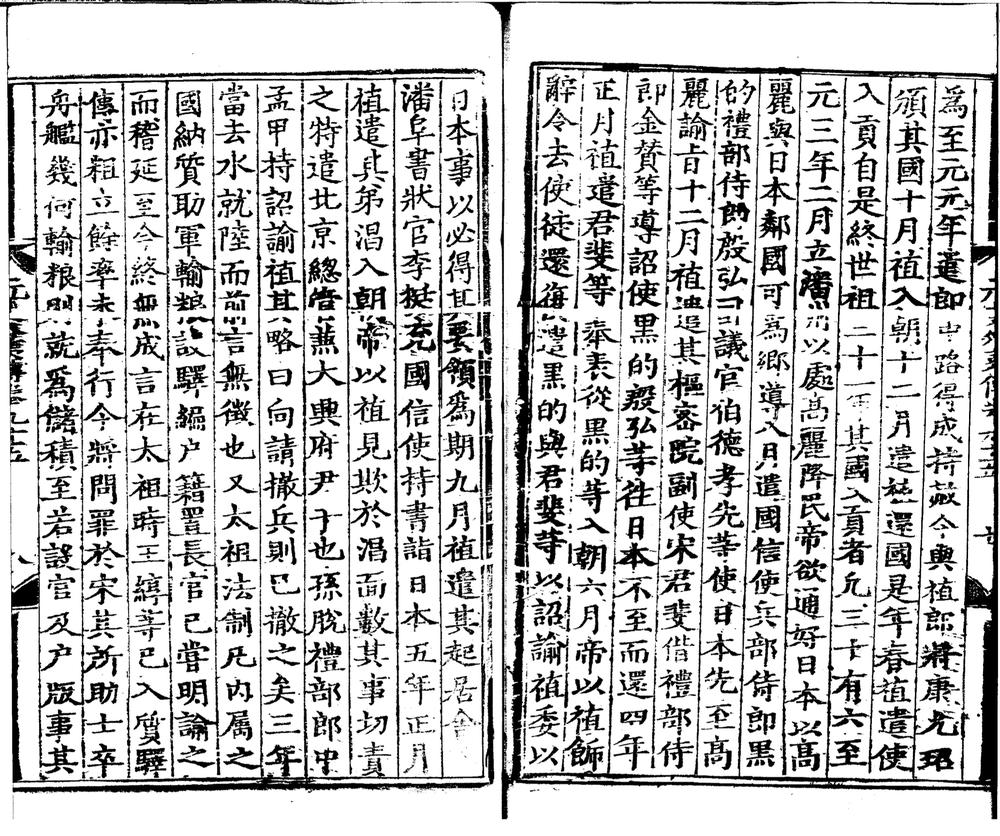 為至元元年遣郎中路得成持赦令與植郎將康允𤥻
頒其國十月植入朝十二月遣植還國是年春植遣使
入貢自是終世祖三十一年其國入貢者凡三十有六至
元三年二月立瀋州以處高麗降民帝欲通好日本以高
麗與日本鄰國可為鄉導八月遣國信使兵部侍郎黑
的禮部侍郎殷弘計議官伯德孝先等使日本先至高
麗諭旨十二月植遣其樞密院副使宋君斐借禮部侍
郎金贊等導詔使黑的殷弘等往日本不至而還四年
正月植遣君斐等奉表從黑的等入朝六月帝以植飾
辭令去使徒還復遣黑的與君斐等以詔諭植委以
日本事以必得其要領為期九月植遣其起居舍
潘阜書狀官李挺充國信使持書詣日本五年正月
植遣其弟淐入朝帝以植見欺於淐面數其事切責
之特遣北京總管兼大興府尹于也孫脫禮部郎中
孟甲持詔諭植其略曰向請撤兵則已撤之矣三年
當去水就陸而前言無徵也又太祖法制凡內属之
國納質助軍輸粮設驛編户籍置長官已嘗明諭之
而稽延至今終無成言在太祖時王綧等已入質驛
傳亦粗立餘率未奉行今將問罪於宋其所助士卒
舟艦幾何輸粮則就為儲積至若設官及户版事其